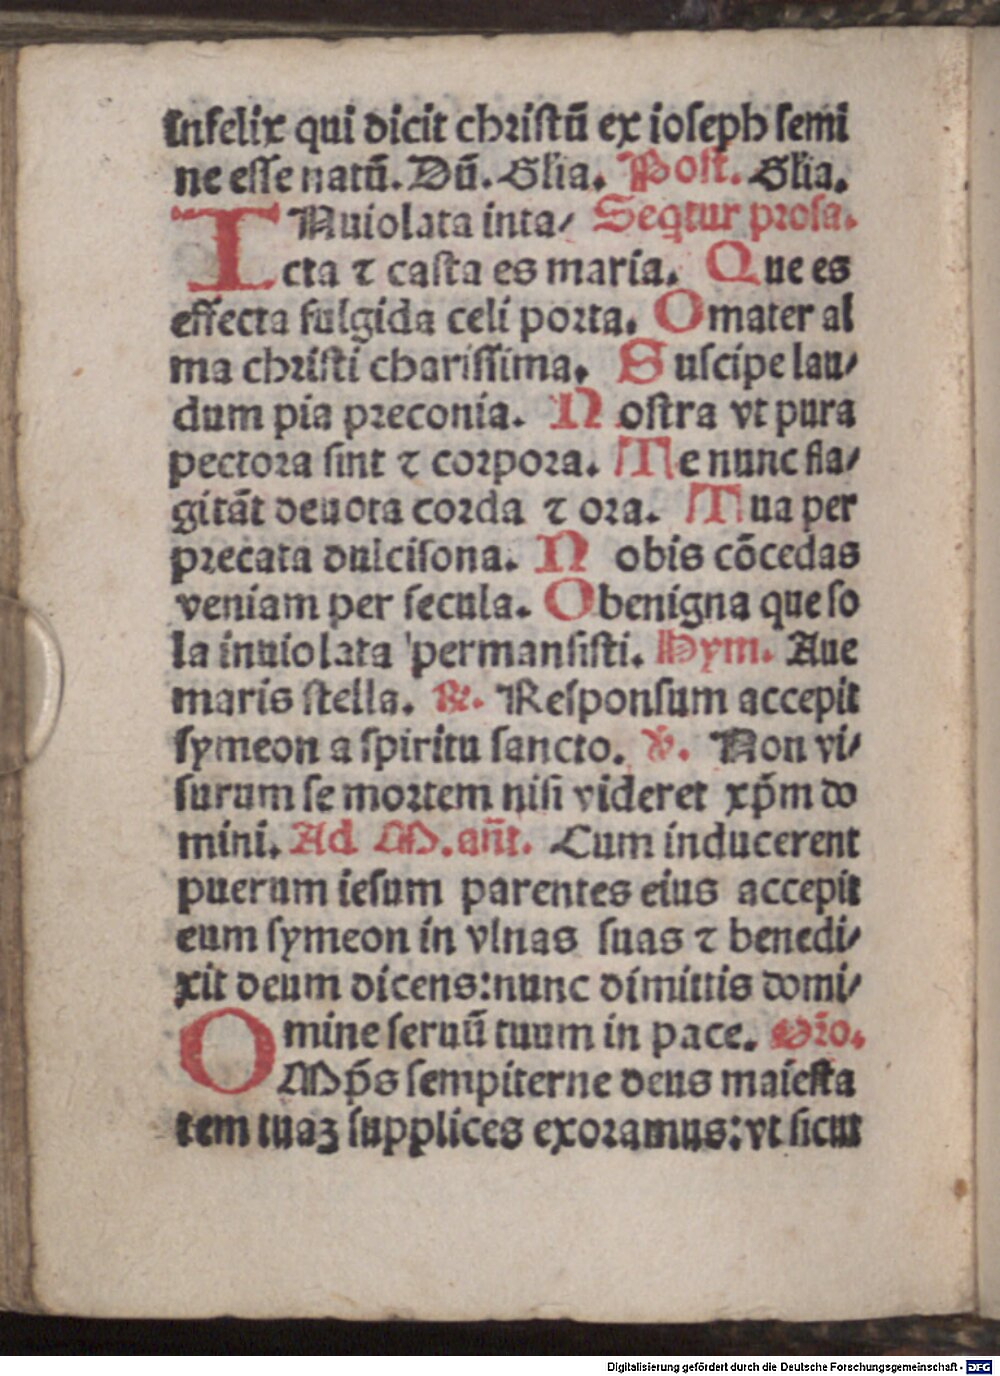 Infelix qui dicit christū ex ioseph semi
ne esse natū. Dū. Glia. Post. Glia.
INuiolata inta/ Seqtur prosa.
cta ⁊ casta es maria. Que es
effecta fulgida celi porta. O mater al
ma christi charissima. Suscipe lau/
dum pia preconia. Nostra vt pura
pectora sint ⁊ corpora. Te nunc fla/
gitāt deuota corda ⁊ ora. Tua per
precata dulcisona. Nobis cōcedas
veniam per secula. O benigna que so
la inuiolata permansisti. Hym. Aue
maris stella. ℟. Responsum accepit
symeon a spiritu sancto. ℣. Non vi/
surum se mortem nisi videret xp̄m do
mini. Ad M. añt. Cum inducerent
puerum iesum parentes eius accepit
eum symeon in vlnas suas ⁊ benedi/
xit deum dicens: nunc dimittis domi/
mine seruū tuum in pace. Oŕo.
OMp̄s sempiterne deus maiesta
tem tuaꝫ supplices exoramus: vt sicut
Digitalisierung gefördert durch die Deutsche Forschungsgemeinschaft - DFG